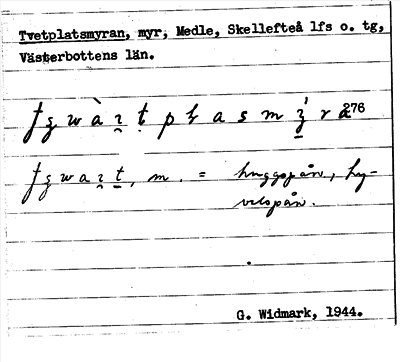 Tvetplatsmyran, myr, Medle, Skellefteå lfs o. tg,
Västerbottens län.
276
m. = huggspån, hy-
velspån.
G. Widmark, 1944.